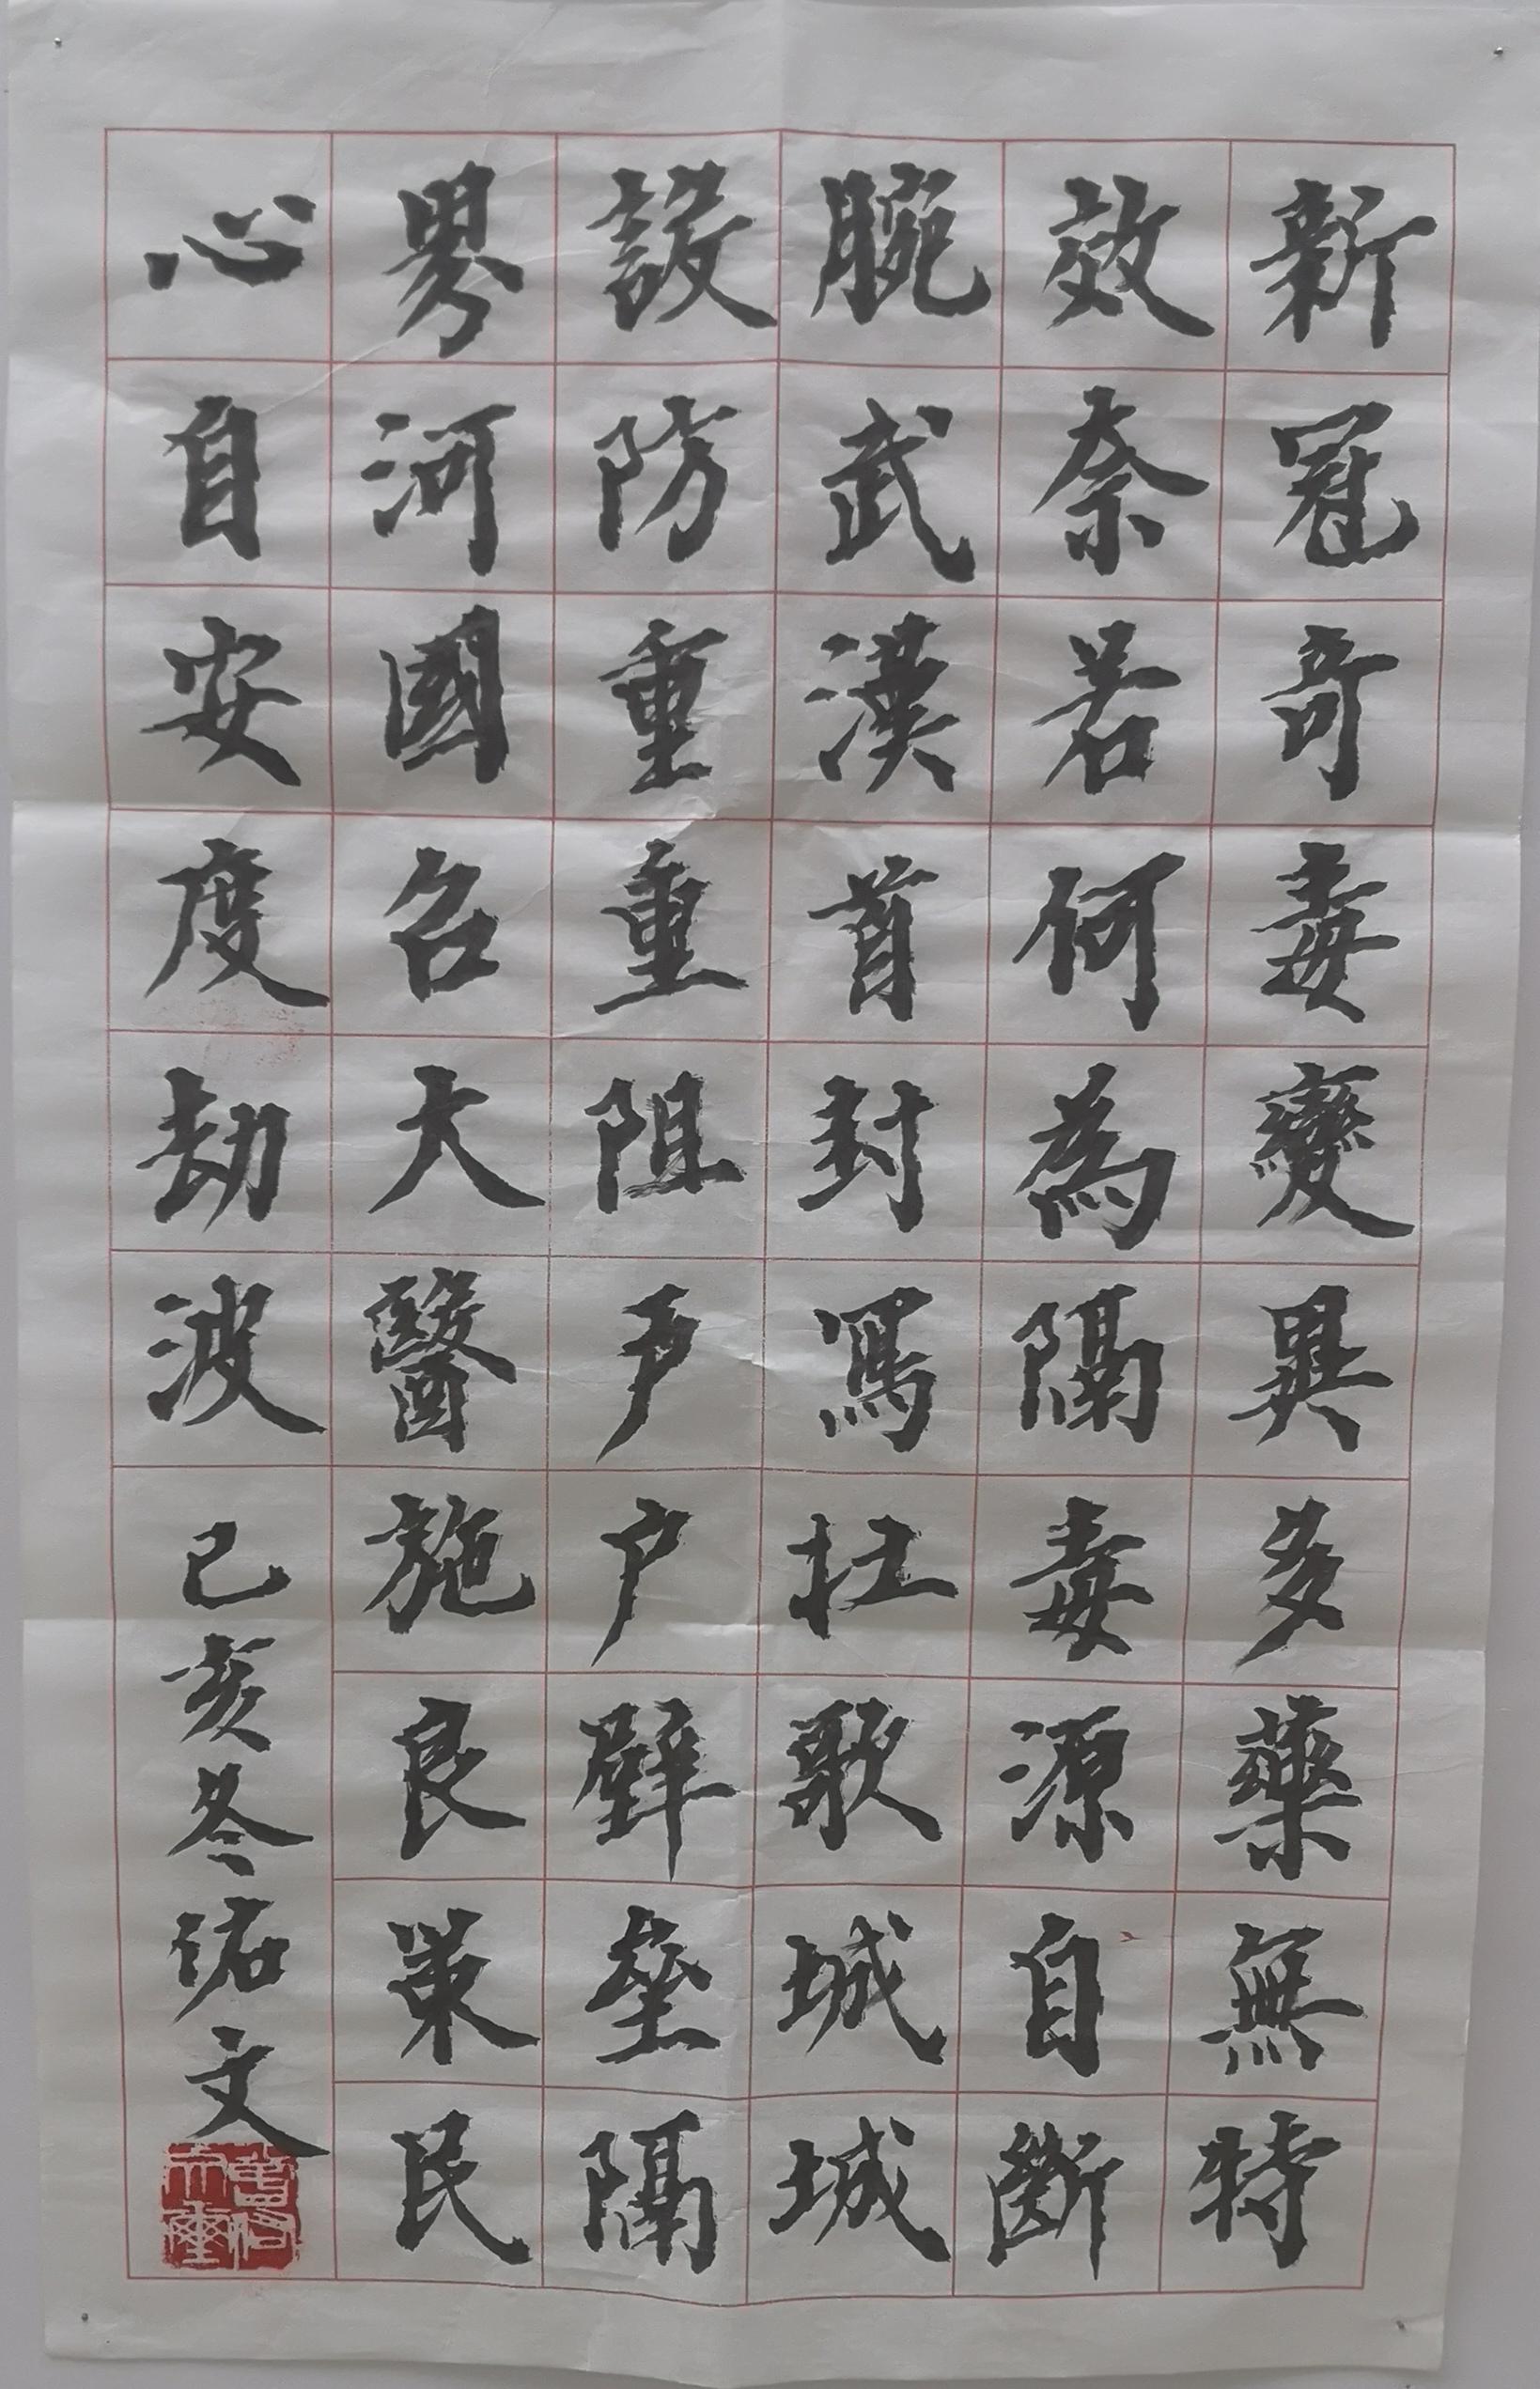 新冠奇毒變異多藥無特
效奈若何為隔毒源自斷
腕武漢首封寫壯歌城城
設防重重阻戶戶壁壘隔
界河國名大醫施良策民
心自安度劫波
己亥冬佑文